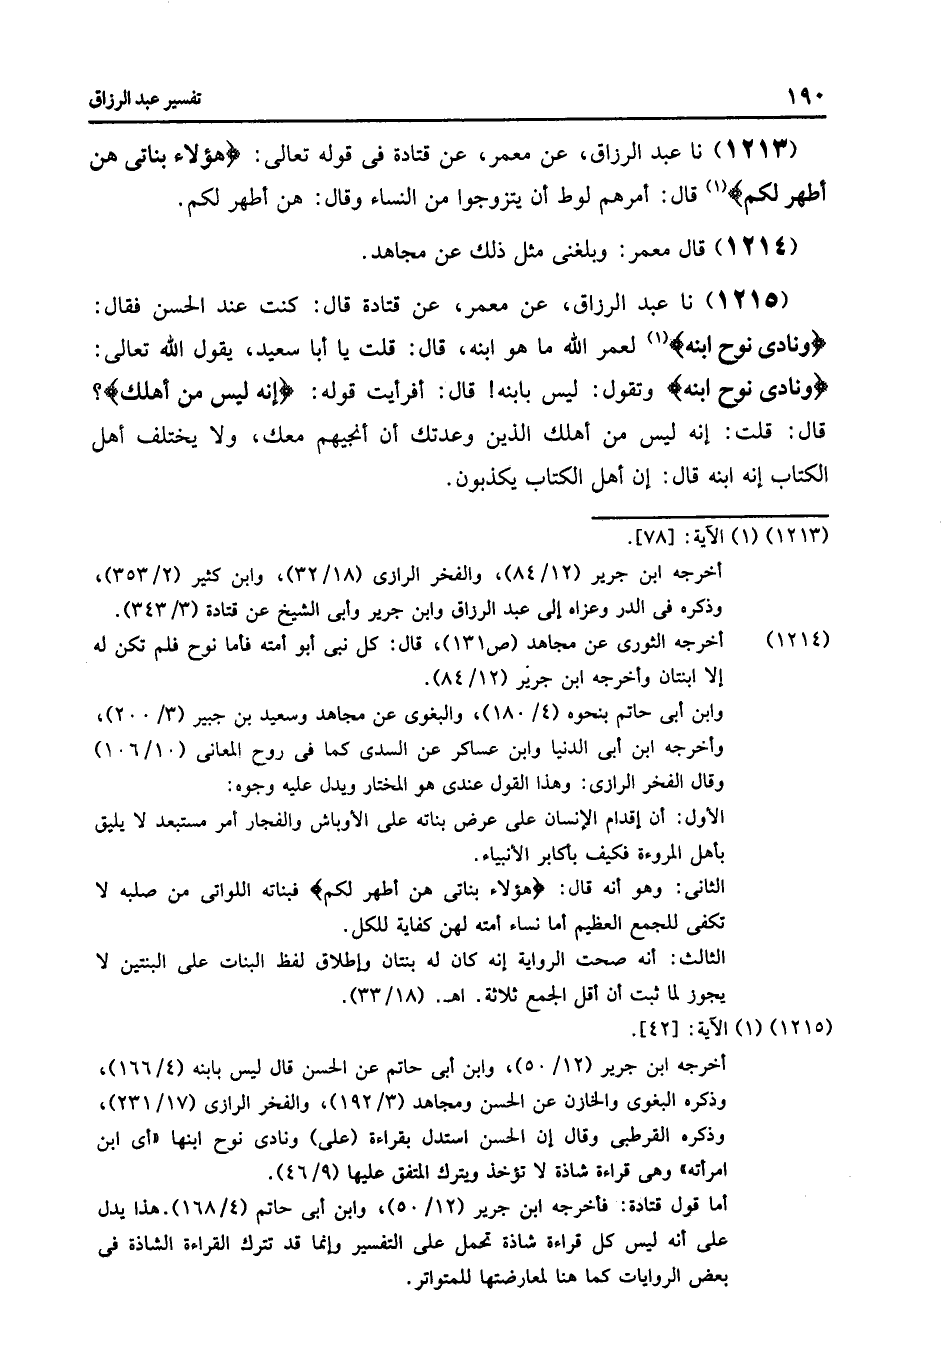 ١٩٠
تفسير عبد الرزاق
(١٢١٣) نا عبد الرزاق، عن معمر، عن قتادة فى قوله تعالى: ﴿هؤلاء بناتى هن
أطهر لكم﴾(١) قال: أمرهم لوط أن يتزوجوا من النساء وقال: هن أطهر لكم.
(١٢١٤) قال معمر: وبلغنى مثل ذلك عن مجاهد.
(١٢١٥) نا عبد الرزاق، عن معمر، عن قتادة قال: كنت عند الحسن فقال:
﴿ونادى نوح ابنه﴾(١) لعمر الله ما هو ابنه، قال: قلت يا أبا سعيد، يقول الله تعالى:
﴿ونادى نوح ابنه﴾ وتقول: ليس بابنه! قال: أفرأيت قوله: ﴿إنه ليس من أهلك﴾؟
قال: قلت: إنه ليس من أهلك الذين وعدتك أن أنجيهم معك، ولا يختلف أهل
الكتاب إنه ابنه قال: إن أهل الكتاب يكذبون.
(١٢١٣) (١) الآية: [٧٨].
أخرجه ابن جرير (٨٤/١٢)، والفخر الرازى (٣٢/١٨)، وابن كثير (٣٥٣/٢)،
وذكره فى الدر وعزاه إلى عبد الرزاق وابن جرير وأبى الشيخ عن قتادة (٣٤٣/٣).
(١٢١٤) أخرجه الثورى عن مجاهد (ص١٣١)، قال: كل نبى أبو أمته فأما نوح فلم تكن له
إلا ابنتان وأخرجه ابن جرير (٨٤/١٢).
وابن أبى حاتم بنحوه (١٨٠/٤)، والبغوى عن مجاهد وسعيد بن جبير (٢٠٠/٣)،
وأخرجه ابن أبى الدنيا وابن عساكر عن السدى كما فى روح المعانى (١٠٦/١٠)
وقال الفخر الرازى: وهذا القول عندى هو المختار ويدل عليه وجوه:
الأول: أن إقدام الإنسان على عرض بناته على الأوباش والفجار أمر مستبعد لا يليق
بأهل المروءة فكيف بأكابر الأنبياء.
الثانى: وهو أنه قال: ﴿هؤلاء بناتى هن أطهر لكم﴾ فبناته اللواتى من صلبه لا
تكفى للجمع العظيم أما نساء أمته لهن كفاية للكل.
الثالث: أنه صحت الرواية إنه كان له بنتان وإطلاق لفظ البنات على البنتين لا
يجوز لما ثبت أن أقل الجمع ثلاثة. اهـ. (٣٣/١٨).
(١٢١٥) (١) الآية: [٤٢].
أخرجه ابن جرير (٥٠/١٢)، وابن أبى حاتم عن الحسن قال ليس بابنه (١٦٦/٤)،
وذكره البغوى والخازن عن الحسن ومجاهد (١٩٢/٣)، والفخر الرازى (٢٣١/١٧)،
وذكره القرطبى وقال إن الحسن استدل بقراءة (على) ونادى نوح ابنها «أى ابن
امرأته» وهى قراءة شاذة لا تؤخذ ويترك المتفق عليها (٤٦/٩).
أما قول قتادة: فأخرجه ابن جرير (٥٠/١٢)، وابن أبى حاتم (١٦٨/٤).هذا يدل
على أنه ليس كل قراءة شاذة تحمل على التفسير وإنما قد تترك القراءة الشاذة فى
بعض الروايات كما هنا لمعارضتها للمتواتر.